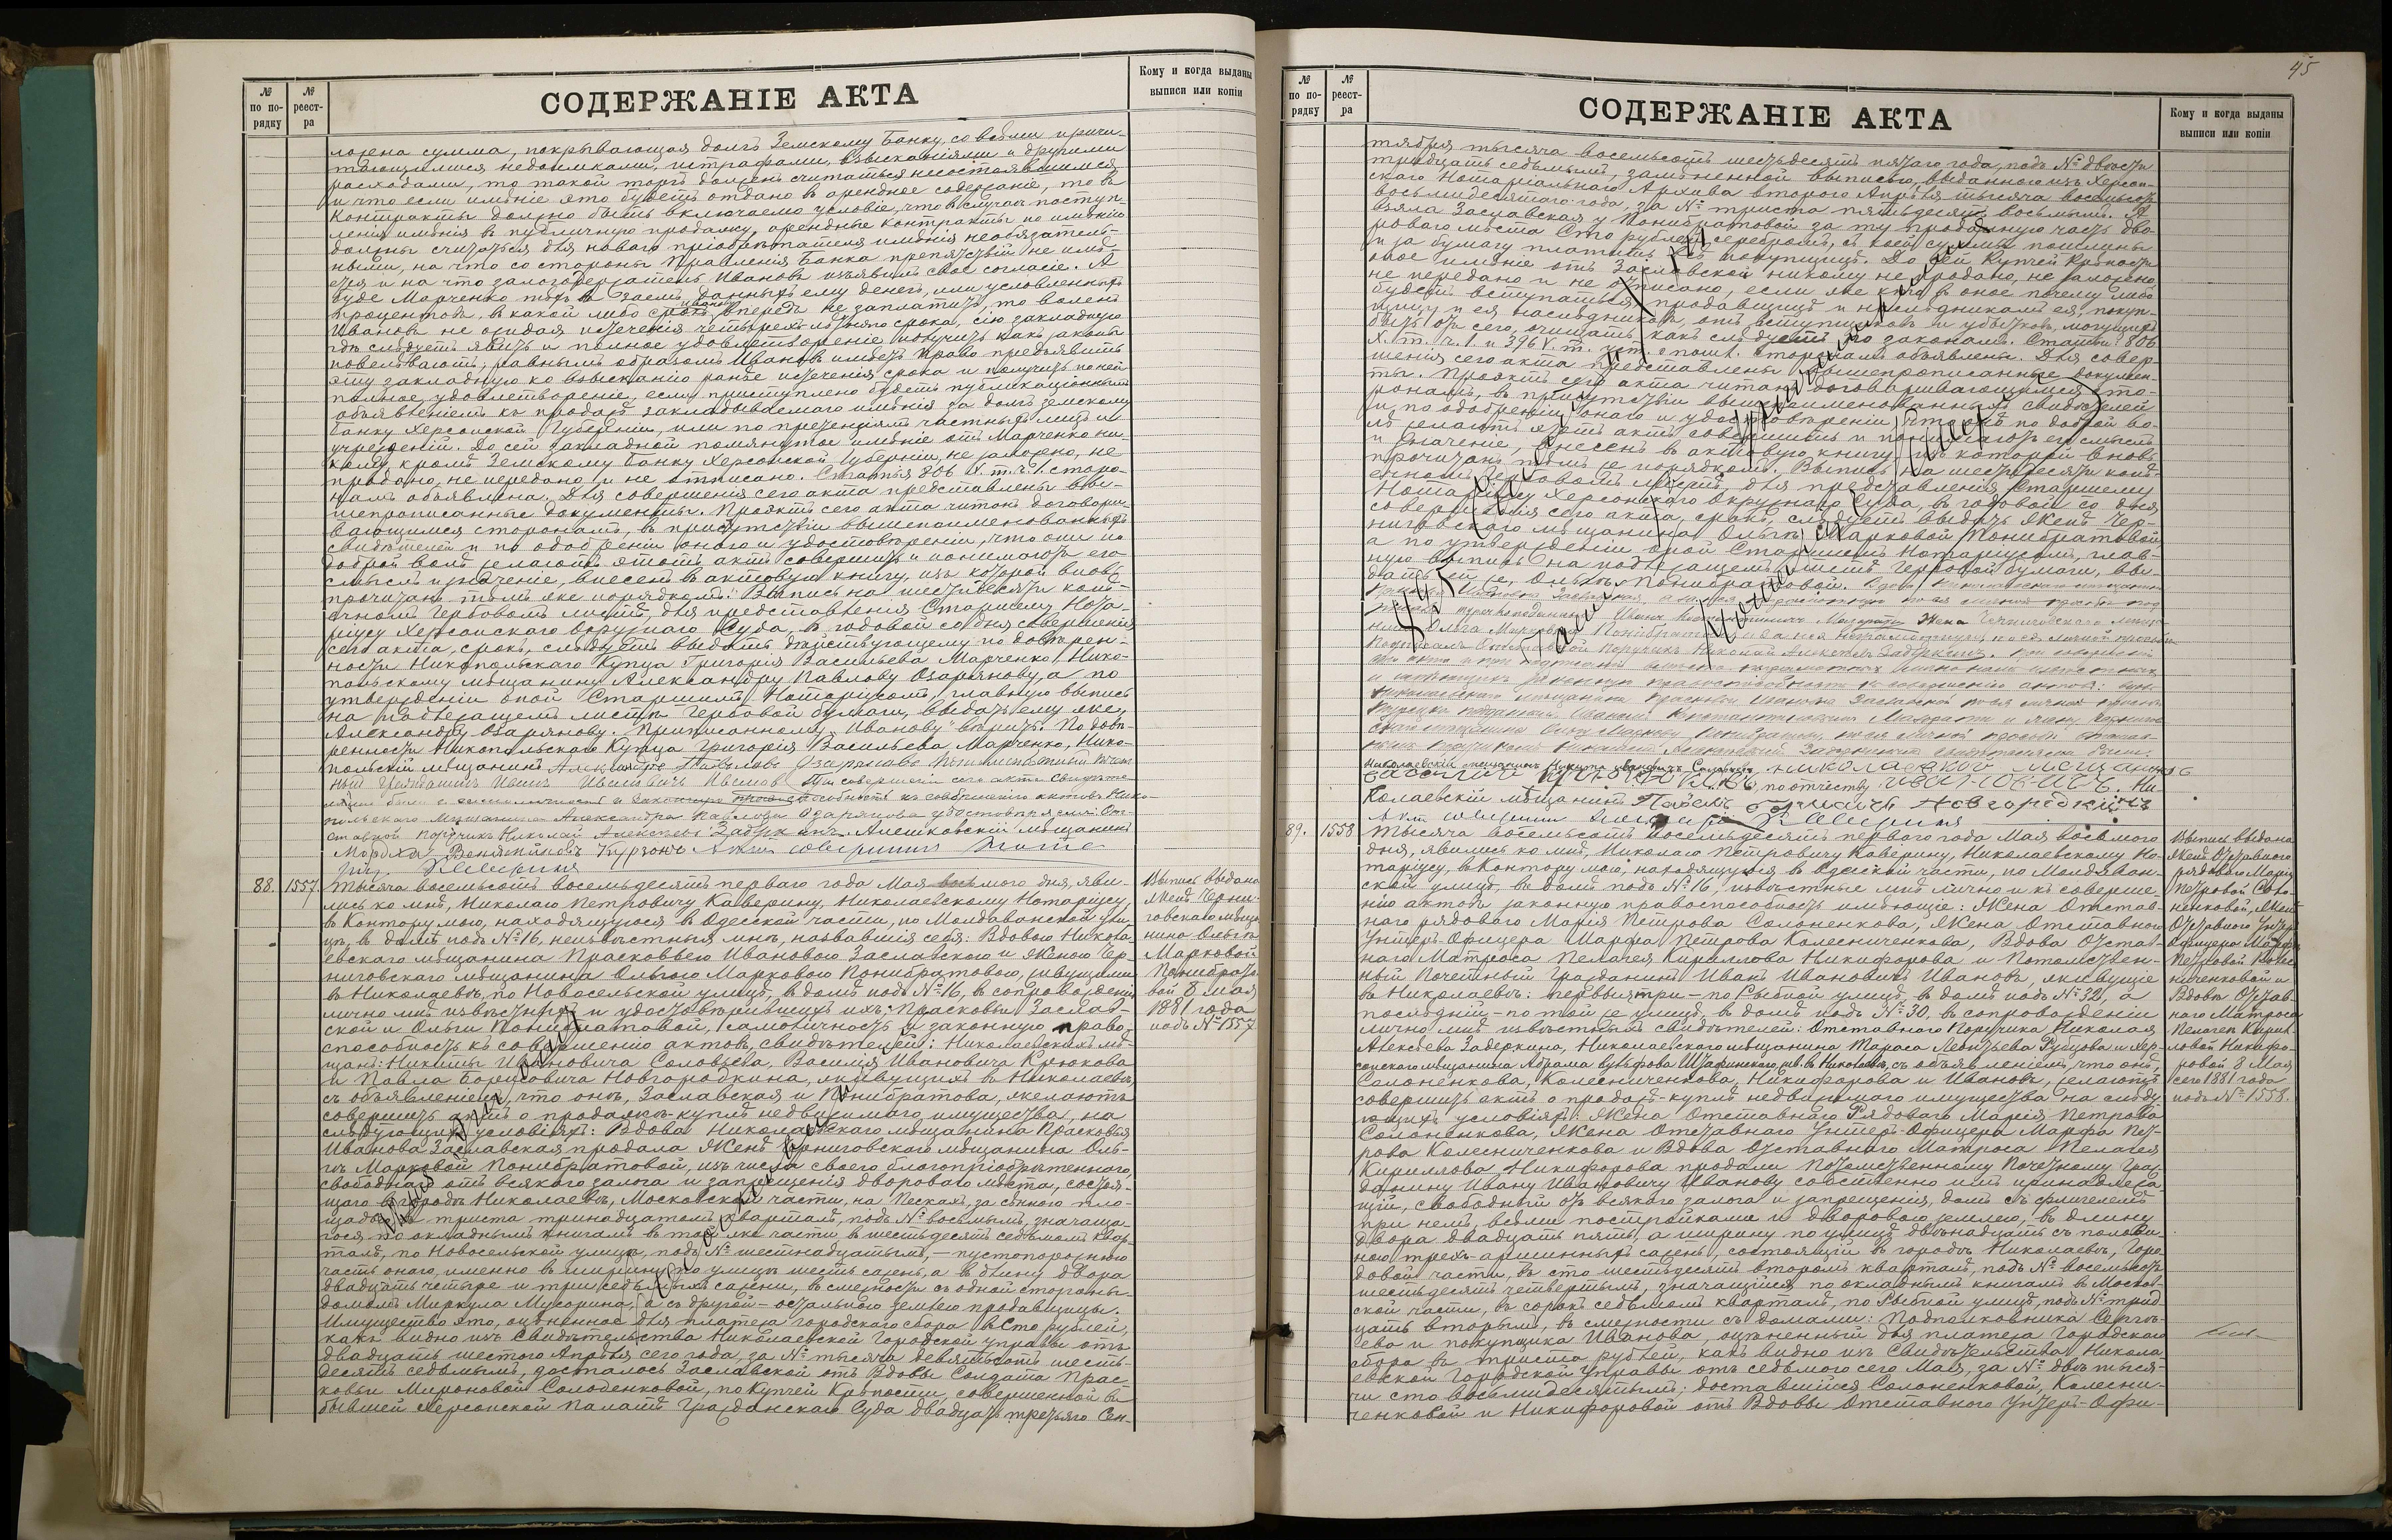 № по по-рядку
№ реест-ра
СОДЕРЖАНІЕ АКТА
Кому и когда выданы выписи или копіи
ложена сумма, покрывающая долгъ Земскому Банку, со всѣми причи-
тающимися недоимками, штрафами, взысканіями и другими
расходами, то такой торгъ долженъ считаться несостоявшимся
и что если имѣніе это будетъ отдано въ арендное содержаніе, то въ
контракты должно быть включаемо условіе, что въ случаѣ поступ-
ленія имѣнія въ публичную продажу, арендные контракты по имѣнію
должны считаться для новаго пріобрѣтателя имѣнія необязатель-
ными, на что со стороны Правленія Банка препятствій не имѣ-
ется и на что залогодержатель Ивановъ изъявилъ свое согласіе. А
буде Марченко тѣхъ въ заемъ данныхъ ему денегъ, или условленныхъ
процентовъ, въ какой либо срокъ впередъ не заплатитъ, то воленъ
Ивановъ не ожидая истеченія четырехлѣтняго срока, сію закладную
гдѣ слѣдуетъ явить и полное удовлетвореніе получить какъ законы
повелѣваютъ; равнымъ образомъ Ивановъ имѣетъ право предъявить
эту закладную ко взысканію ранѣе истеченія срока и получить по ней
полное удовлетвореніе, если приступлено будетъ публикаціоннымъ
объявленіемъ къ продажѣ закладываемаго имѣнія за долгъ Земскому
Банку Херсонской Губерніи, или по претензіямъ частныхъ лицъ и
учрежденій. До сей закладной помянутое имѣніе отъ Марченко ни-
кому, кромѣ Земскому Банку Херсонской Губерніи, не заложено, не
продано, не передано и не отписано. Статья 806 X. т. ч. 1. сторо-
намъ объявлена. Для совершенія сего акта представлены вы-
шепрописанные документы. Проэктъ сего акта читанъ договари-
вающимся сторонамъ, въ присутствіи вышепоименованныхъ
свидѣтелей и по одобреніи онаго и удостовѣреніи, что они по
доброй волѣ желаютъ этотъ актъ совершить и понимаютъ его
смыслъ и значеніе, внесенъ въ актовую книгу, изъ которой вновь
прочитанъ тѣмъ же порядкомъ. Выпись на шестидесяти копѣ-
ечномъ гербовомъ листѣ, для представленія Старшему Нота-
ріусу Херсонскаго Окружнаго Суда, въ годовой со дня совершенія
сего акта, срокъ, слѣдуетъ выдать дѣйствующему по довѣрен-
ности Никопольскаго Купца Григорія Васильева Марченко, Нико-
польскому мѣщанину Александру Павлову Озарянову, а по
утвержденіи оной Старшимъ Нотаріусомъ, главную выпись
на подлежащемъ листѣ гербовой бумаги, выдать ему же,
Александру Озарянову. Приписанному „Иванову" вѣрить. По довѣ-
ренности Никопольскаго Купца Григорія Васильева Марченко, Нико-
польскій мѣщанинъ Александръ Павловъ Озаряновъ Потомственный Почет-
ный Гражданинъ Иванъ Ивановичъ Ивановъ При совершеніи сего акта свидѣте-
лями были и самоличность и законную правоспособность къ совершенію актовъ Нико-
польскаго мѣщанина Александра Павлова Озарянова удостовѣряемъ: От-
ставной Поручикъ Николай Алексѣевъ Задеркинъ. Алешковскій мѣщанинъ
88. 1557. Тысяча восемьсотъ восемьдесятъ перваго года Мая восьмого дня, яви-
лись ко мнѣ, Николаю Петровичу Каверину, Николаевскому Нотаріусу,
въ Контору мою, находящуюся въ Одесской части, по Молдаванской ули-
цѣ, въ домѣ подъ № 16, неизвѣстныя мнѣ, назвавшія себя: Вдовою Никола-
евскаго мѣщанина Прасковьею Ивановою Заславскою и Женою Чер-
ниговскаго мѣщанина Ольгою Марковою Понибратовою, живущими
въ Николаевѣ, по Новосельской улицѣ, въ домѣ подъ № 16, въ сопровожденіи
лично мнѣ извѣстныхъ и удостовѣрившихъ ихъ: Прасковьи Заслав-
ской и Ольги Понибратовой, самоличность и законную право-
способность къ совершенію актовъ, свидѣтелей: Николаевскихъ мѣ-
щанъ: Никиты Ивановича Соловьева, Василія Ивановича Крюкова
и Павла Борисовича Новгородкина, живущихъ въ Николаевѣ,
съ объявленіемъ, что онѣ, Заславская и Понибратова, желаютъ
совершить актъ о продажѣ-куплѣ недвижимаго имущества, на
слѣдующихъ условіяхъ: Вдова Николаевскаго мѣщанина Прасковья
Иванова Заславская продала Женѣ Черниговскаго мѣщанина Оль-
гѣ Марковой Понибратовой, изъ числа своего благопріобрѣтеннаго,
свободнаго отъ всякаго залога и запрещенія двороваго мѣста, состоя-
щаго въ городѣ Николаевѣ, Московской части, на Пескахъ, за сѣнною пло-
щадью въ триста тринадцатомъ кварталѣ, подъ № восьмымъ, значаща-
гося, по окладнымъ книгамъ въ той же части въ шестьдесятъ седьмомъ квар-
талѣ, по Новосельской улицѣ, подъ № шестнадцатымъ, — пустопорожнюю
часть онаго, именно въ ширину по улицѣ шесть сажень, а въ длину двора
двадцать четыре и три седьмыхъ сажени, въ смежности съ одной стороны
домомъ Миркула Мухорина, а съ другой – остальною землею продавщицы.
Имущество это, оцѣненное для платежа городскаго сбора въ Сто рублей,
какъ видно изъ Свидѣтельства Николаевской Городской управы отъ
двадцать шестого Апрѣля сего года, за № тысяча девятьсотъ шесть-
десятъ седьмымъ, досталось Заславской отъ Вдовы Солдата Прас-
ковьи Мироновой Солоденковой, по Купчей Крѣпости, совершенной въ
бывшей Херсонской Палатѣ Гражданскаго Суда двадцать третьяго Сен-
Выпись выдана
Женѣ Черни-
говскаго мѣща-
нина Ольгѣ
Марковой
Понибрато-
вой 8 мая
1881 года
подъ № 1557
45
№ по по-рядку
№ реест-ра
СОДЕРЖАНІЕ АКТА
Кому и когда выданы выписи или копіи
тября тысяча восемьсотъ шестьдесятъ пятаго года, подъ № двѣсти
тридцать седьмымъ, замѣненной выписью, выданною изъ Херсон-
скаго Нотаріальнаго Архива второго Апрѣля тысяча восемьсотъ
восьмидесятаго года, за № триста пятьдесятъ восьмымъ. А
взяла Заславская у Понибратовой за ту проданную часть дво-
роваго мѣста Сто рублей серебромъ, съ коей суммы пошлины
и за бумагу платитъ покупщица. До сей Купчей Крѣпости
оное имѣніе отъ Заславской никому не продано, не заложено,
не передано и не отписано, если же кто въ оное почему либо
будетъ вступаться, продавщицѣ и наслѣдникамъ ея, покуп-
щицу и ея наслѣдниковъ, отъ вступщиковъ и убытковъ, могущихъ
быть отъ сего, очищать какъ слѣдуетъ по законамъ. Статьи: 806
X. т. ч. 1. и 396 V. т. уст. о пошл. сторонамъ объявлены. Для совер-
шенія сего акта представлены вышепрописанные докумен-
ты. Проэктъ сего акта читанъ договаривающимся сто-
ронамъ, въ присутствіи вышепоименованныхъ свидѣтелей
и по одобреніи онаго и удостовѣреніи, что онѣ по доброй во-
лѣ желаютъ этотъ актъ совершить и понимаютъ его смыслъ
и значеніе, внесенъ въ актовую книгу, изъ которой вновь
прочитанъ тѣмъ же порядкомъ. Выпись на шестидесяти копѣ-
ечномъ гербовомъ листѣ, для представленія Старшему
Нотаріусу Херсонскаго Окружнаго Суда, въ годовой со дня
совершенія сего акта, срокъ, слѣдуетъ выдать Женѣ Чер-
ниговскаго мѣщанина Ольгѣ Марковой Понибратовой
а по утвержденіи оной Старшимъ Нотаріусомъ, глав-
ную выпись на подлежащемъ листѣ гербовой бумаги, вы-
дать ей же, Ольгѣ Понибратовой.
Николаевскій мѣщанинъ Никита Ивановъ Соловьевъ. николаевскій мещанинъ
по отчеству ивановичъ. Ни-
колаевскій мѣщанинъ Павелъ Борисовъ Новгородкинъ
89. 1558 Тысяча восемьсотъ восемьдесятъ перваго года Мая восьмого
дня, явились ко мнѣ, Николаю Петровичу Каверину, Николаевскому Но-
таріусу, въ Контору мою, находящуюся въ Одесской части, по Молдаван-
ской улицѣ, въ домѣ подъ № 16, извѣстные мнѣ лично и къ соверше-
нію актовъ законную правоспособность имѣющіе: Жена Отстав-
наго рядоваго Марія Петрова Солоненкова, Жена Отставнаго
Унтеръ-Офицера Марфа Петрова Колесниченкова, Вдова Отстав-
наго Матроса Пелагея Кириллова Никифорова и Потомствен-
ный Почетный Гражданинъ Иванъ Ивановичъ Ивановъ, живущіе
въ Николаевѣ: первыя три – по Рыбной улицѣ, въ домѣ подъ № 32, а
послѣдній – по той же улицѣ, въ домѣ подъ № 30, въ сопровожденіи
лично мнѣ извѣстныхъ свидѣтелей: Отставнаго Поручика Николая
Алексѣева Задеркина, Николаевскаго мѣщанина Тараса Леонтьева Рубцова и Хер-
сонскаго мѣщанина Абрама Вульфова Шафинскаго, жив. въ Николаевѣ, съ объявленіемъ, что онѣ,
Солоненкова, Колесниченкова, Никифорова и Ивановъ, желаютъ
совершить актъ о продажѣ-куплѣ недвижимаго имущества на слѣду-
ющихъ условіяхъ: Жена Отставнаго Рядоваго Марія Петрова
Солоненкова, Жена Отставнаго Унтеръ-Офицера Марфа Пет-
рова Колесниченкова и Вдова Отставнаго Матроса Пелагея
Кириллова Никифорова продали Потомственному Почетному Граж-
данину Ивану Ивановичу Иванову собственно имъ принадлежа-
щій, свободный отъ всякаго залога и запрещенія, домъ съ флигелемъ
при немъ, всѣми постройками и дворовою землею, въ длину
двора двадцать пять, а ширину по улицѣ двѣнадцать съ полови-
ною трехъ-аршинныхъ сажень, состоящій въ городѣ Николаевѣ, Горо-
довой части, въ сто шестьдесятъ второмъ кварталѣ, подъ № восемьсотъ
шестьдесятъ четвертымъ, значащійся по окладнымъ книгамъ въ Москов-
ской части, въ сорокъ седьмомъ кварталѣ, по Рыбной улицѣ, подъ № трид-
цать вторымъ, въ смежности съ домами: Подполковника Сергѣ-
ева и покупщика Иванова, оцѣненный для платежа Городскаго
сбора въ триста рублей, какъ видно изъ Свидѣтельства Никола-
евской Городской Управы отъ седьмого сего Мая, за № двѣ тыся-
чи сто восьмидесятымъ; доставшійся Солоненковой, Колесни-
ченковой и Никифоровой отъ Вдовы Отставнаго Унтеръ-Офи-
Выпись выдана
Женѣ Отставнаго
рядоваго Маріи
Петровой Соло-
ненковой, Женѣ
Отставнаго Унтеръ
Офицера Марфѣ
Петровой Колес-
ниченковой и
Вдовѣ Отстав-
наго Матроса
Пелагеѣ Кирил-
ловой Никифо-
ровой 8 Мая
сего 1881 года
подъ № 1558.